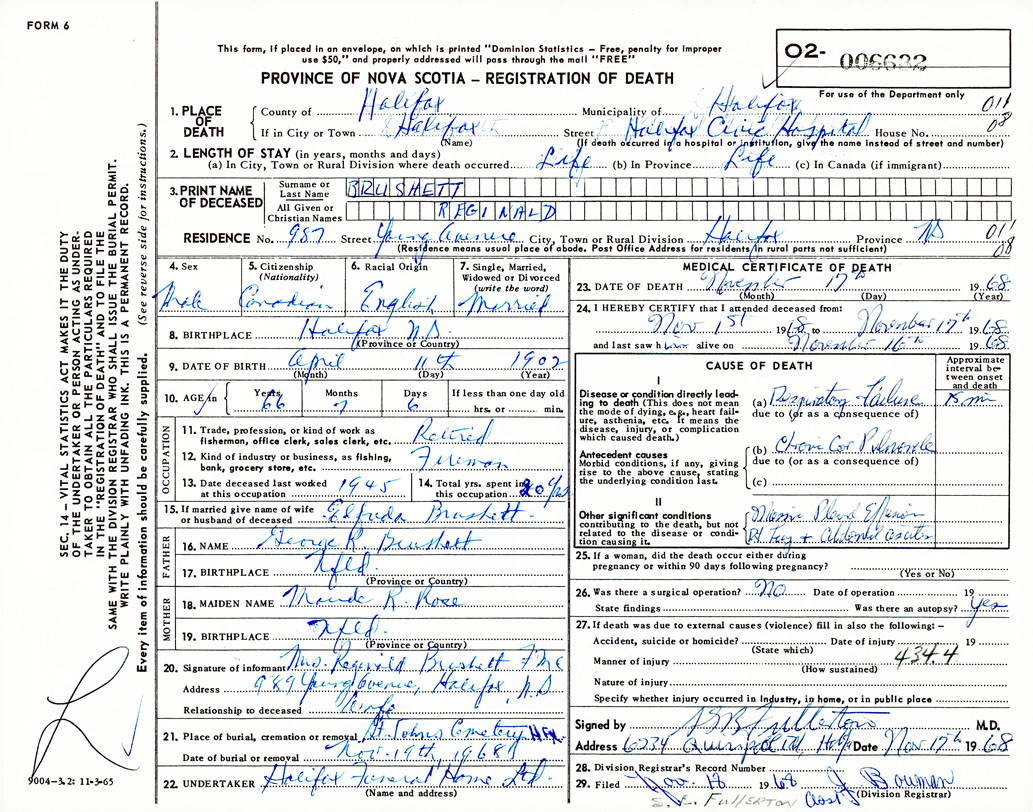 FORM 6
This form, if placed in an envelope, on which is printed "Dominion Statistics – Free, penalty for improper
use $50," and properly addressed will pass through the mail "FREE"
PROVINCE OF NOVA SCOTIA – REGISTRATION OF DEATH
O2- 006632
For use of the Department only
1. PLACE OF DEATH
County of Halifax Municipality of Halifax 011
If in City or Town Halifax Street Halifax Civic Hospital House No. 08
(Name) (If death occurred in a hospital or institution, give the name instead of street and number)
2. LENGTH OF STAY (in years, months and days)
(a) In City, Town or Rural Division where death occurred Life (b) In Province Life (c) In Canada (if immigrant)
3. PRINT NAME OF DECEASED
Surname or Last Name BRUSHETT
All Given or Christian Names REGINALD
RESIDENCE No. 987 Street Young Avenue City, Town or Rural Division Halifax Province NS 011
(Residence means usual place of abode. Post Office Address for residents in rural parts not sufficient) 08
4. Sex
Male
5. Citizenship (Nationality)
Canadian
6. Racial Origin
English
7. Single, Married, Widowed or Divorced (write the word)
Married
8. BIRTHPLACE Halifax N.S.
(Province or Country)
9. DATE OF BIRTH April 11th 1902
(Month) (Day) (Year)
10. AGE in Years Months Days If less than one day old
66 7 6 hrs. or min.
OCCUPATION
11. Trade, profession, or kind of work as
fisherman, office clerk, sales clerk, etc. Retired
12. Kind of industry or business, as fishing,
bank, grocery store, etc. Fireman
13. Date deceased last worked
at this occupation 1945
14. Total yrs. spent in
this occupation 20 yrs
15. If married give name of wife
or husband of deceased Elfreda Brushett
FATHER
16. NAME George R. Brushett
17. BIRTHPLACE Nfld.
(Province or Country)
MOTHER
18. MAIDEN NAME Maude R. Rose
19. BIRTHPLACE Nfld.
(Province or Country)
20. Signature of informant Mrs. Reginald Brushett
Address 989 Young Avenue, Halifax, N.S
Relationship to deceased Wife
21. Place of burial, cremation or removal St. Johns Cemetery Hfx
Date of burial or removal Nov. 19th, 1968
22. UNDERTAKER Halifax Funeral Home Ltd.
(Name and address)
MEDICAL CERTIFICATE OF DEATH
23. DATE OF DEATH November 17th 1968
(Month) (Day) (Year)
24. I HEREBY CERTIFY that I attended deceased from:
Nov 1st 1968 to November 17th 1968
and last saw him alive on November 16th 1968
CAUSE OF DEATH
Approximate interval between onset and death
I
Disease or condition directly leading
to death (This does not mean
the mode of dying, e.g., heart failure,
asthenia, etc. It means the
disease, injury, or complication
which caused death.)
(a) Respiratory Failure 15 min
due to (or as a consequence of)
Antecedent causes
Morbid conditions, if any, giving
rise to the above cause, stating
the underlying condition last.
(b) Chronic Cor Pulmonale
due to (or as a consequence of)
(c)
II
Other significant conditions
contributing to the death, but not
related to the disease or condition
causing it.
Massive Pleural Effusion
Rt Lung + Abdominal ascites
25. If a woman, did the death occur either during
pregnancy or within 90 days following pregnancy?
(Yes or No)
26. Was there a surgical operation? NO Date of operation 19
State findings Was there an autopsy? Yes
27. If death was due to external causes (violence) fill in also the following: –
Accident, suicide or homicide? Date of injury 19
(State which)
Manner of injury 434.4
(How sustained)
Nature of injury
Specify whether injury occurred in Industry, in home, or in public place
Signed by Fullerton M.D.
Address 6234 Quinpool Rd, Hfx Date Nov 17th 1968
28. Division Registrar's Record Number
29. Filed Nov. 18 1968 J. Bowman
(Division Registrar)
S. E. FULLERTON
SEC. 14 – VITAL STATISTICS ACT MAKES IT THE DUTY
OF THE UNDERTAKER OR PERSON ACTING AS UNDERTAKER
TO OBTAIN ALL THE PARTICULARS REQUIRED
IN THE "REGISTRATION OF DEATH" AND TO FILE THE
SAME WITH THE DIVISION REGISTRAR WHO SHALL ISSUE THE BURIAL PERMIT.
WRITE PLAINLY WITH UNFADING INK. THIS IS A PERMANENT RECORD.
Every item of information should be carefully supplied. (See reverse side for instructions.)
9004-3.2: 11-3-65